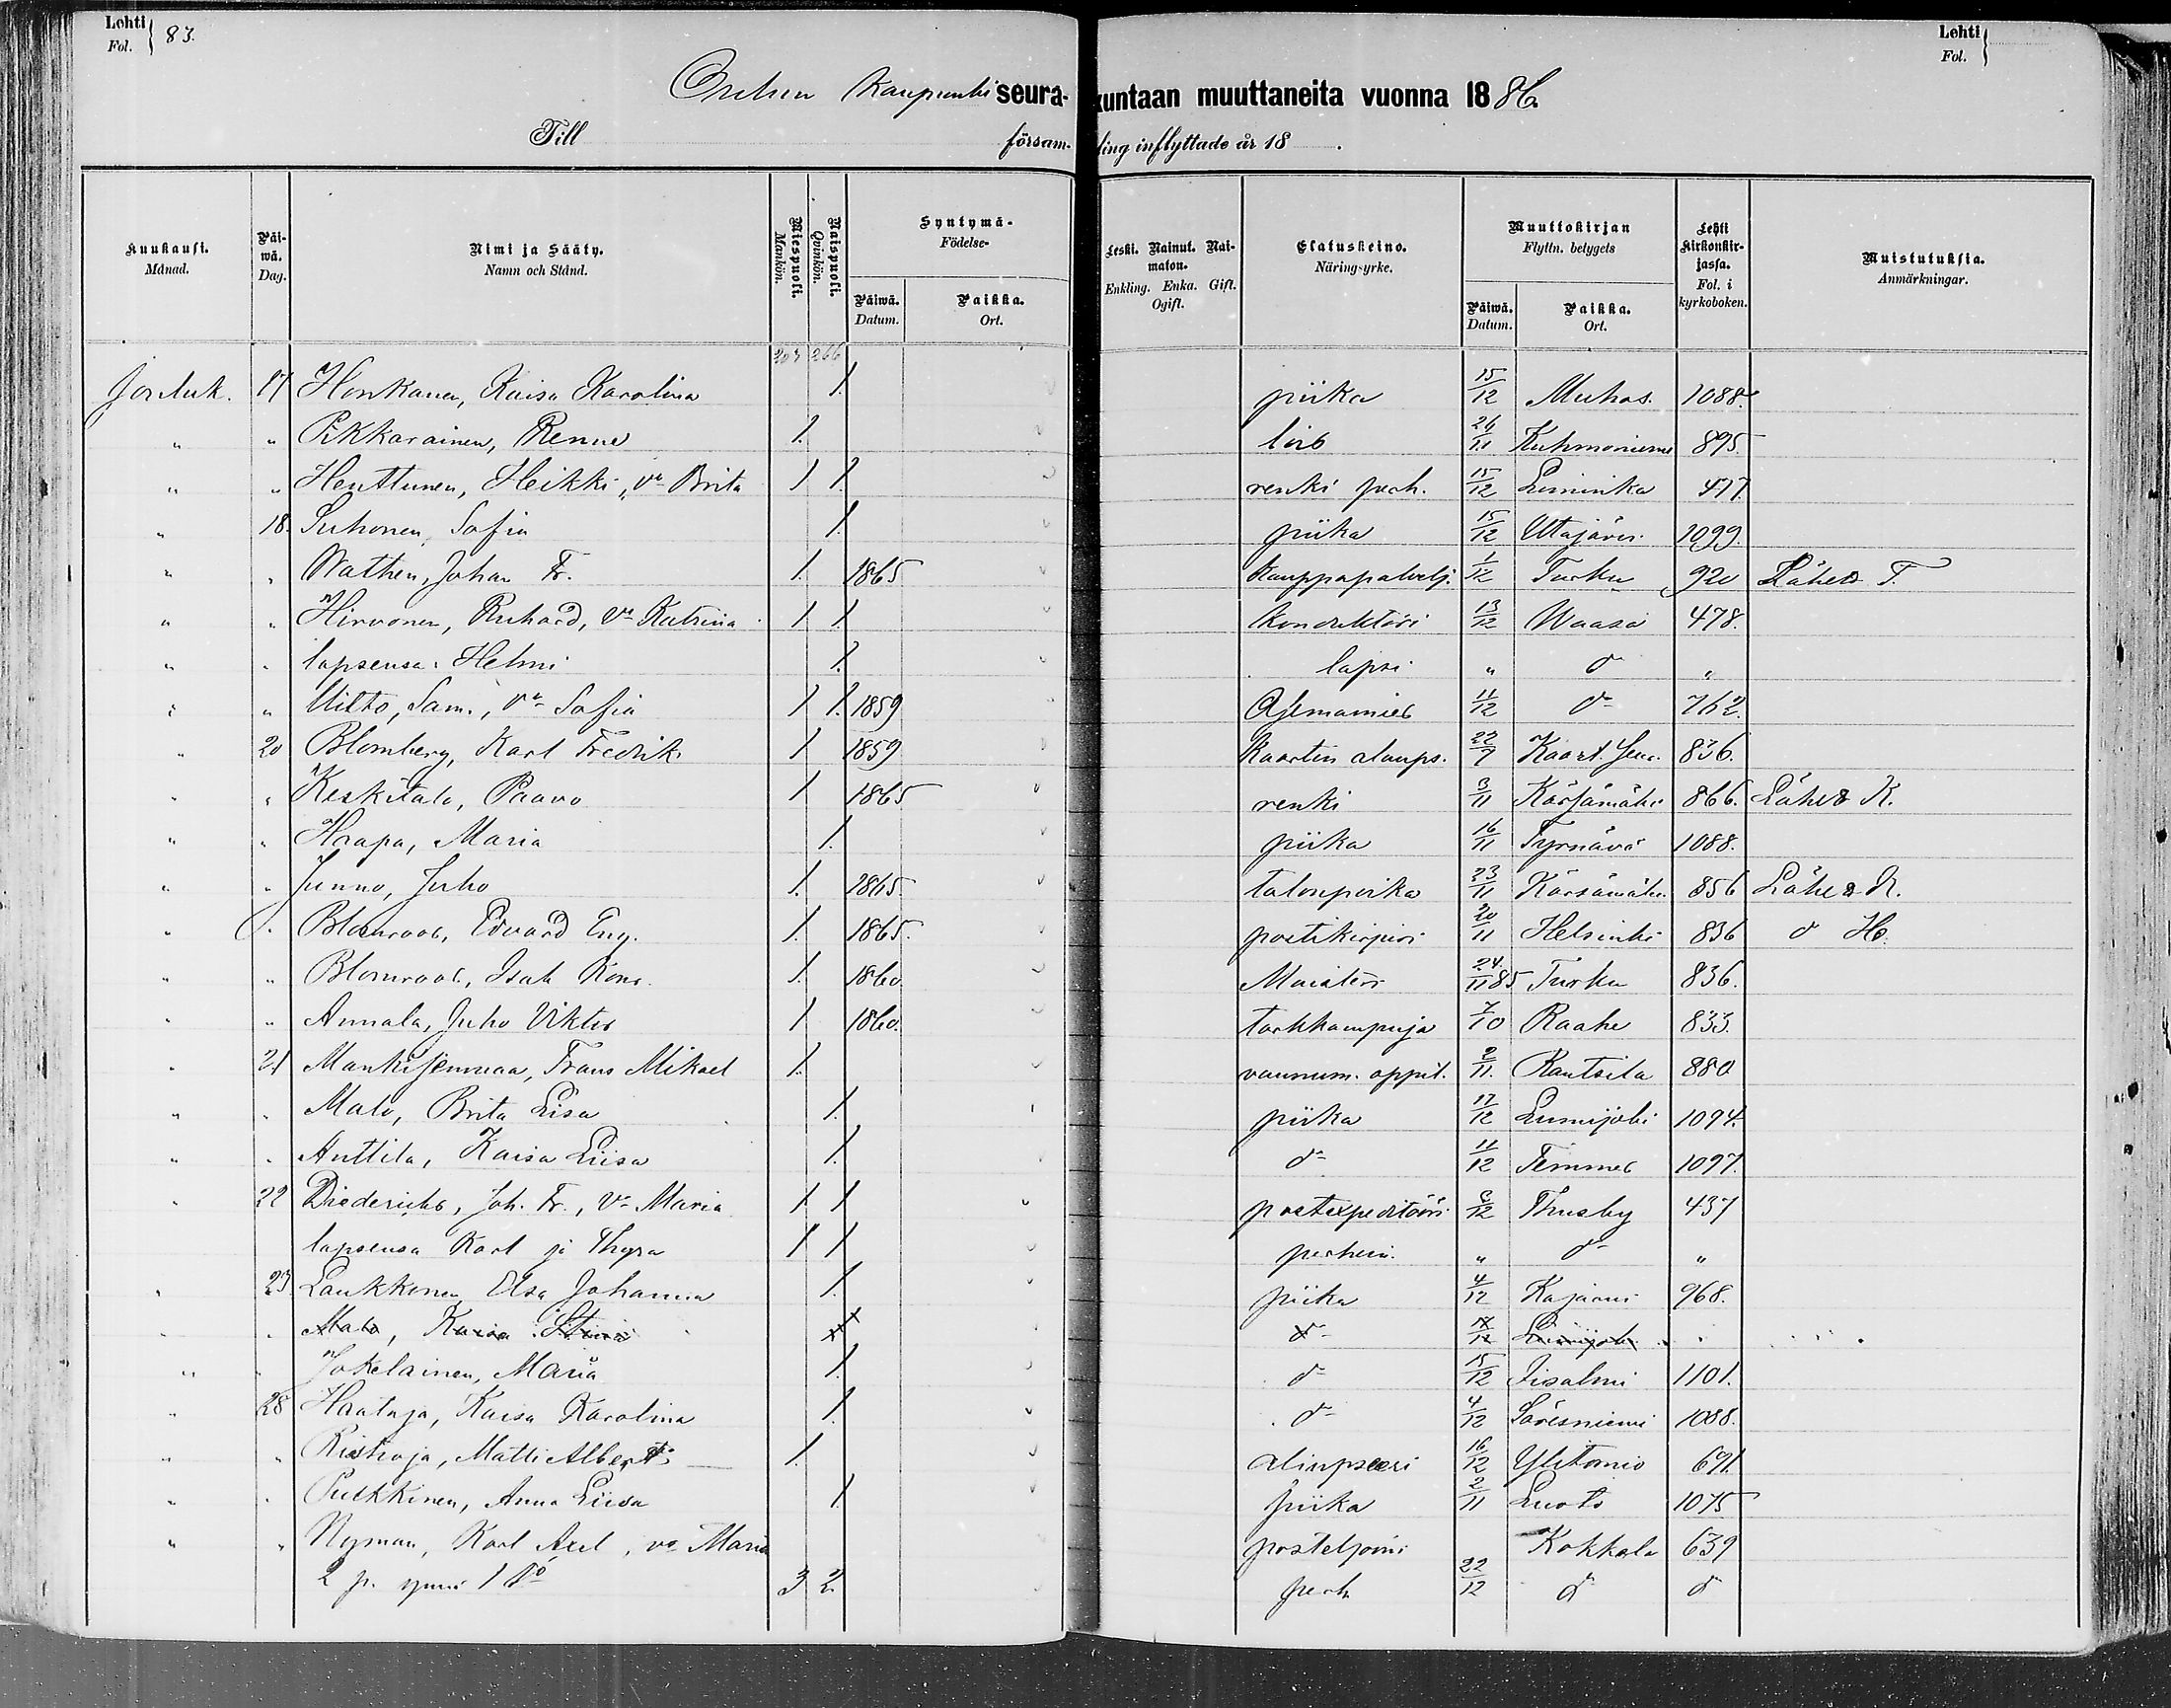 Lehti Fol. } 83.
Lehti Fol. }
Oulun kaupunki seurakuntaan muuttaneita vuonna 1886.
Till församling inflyttade år 18 .
Kuukausi. Månad. | Päiwä. Dag. | Nimi ja Sääty. Namn och Stånd. | Miespuoli. Mankön. | Naispuoli. Qvinkön. | Syntymä- Födelse- Päiwä. Datum. | Paikka. Ort. | Leski. Nainut. Naimaton. Enkling. Enka. Gift. Ogift. | Elatuskeino. Näringsyrke. | Muuttokirjan Flyttn. betygets Päiwä. Datum. | Paikka. Ort. | Lehti kirkonkirjassa. Fol. i kyrkoboken. | Muistutuksia. Anmärkningar.
203 266
Jouluk. 17 Honkanen, Kaisa Karolina 1. piika 15/12 Muhos. 1088.
" " Pikkarainen, Renne 1. lois 26/11 Kuhmoniemi 895.
" " Henttunen, Heikki, vo Brita 1 1. renki perh. 15/12 Liminka 477
" 18. Suhonen, Sofia 1. piika 15/12 Utajärvi 1099.
" " Wathen, Johan Fr. 1. 1865 kauppapalvelj. 1/12 Turku 920
" " Hirvonen, Richard, vo Katrina 1 1. konduktöri 13/12 Waasa 478.
" " lapsensa: Helmi 1. lapsi " do "
" " Uitto, Sam., vo Sofia 1 1. 1859 Asemamies 11/12 do 762.
" 20 Blomberg, Karl Fredrik 1 1859 kaartin 22/7 836.
" " Keskitalo, Paavo 1 1865 renki 3/11 Kärsämäki 866. K.
" " Haapa, Maria 1. piika 16/11 Tyrnävä 1088.
" " Junno, Juho 1. 1865. talonpoika 23/11 Kärsämäki 856 K.
" " Blomroos, Edvard Eug. 1. 1865. 20/11 Helsinki 836 do H.
" " Blomroos, Isak 1. 1860 24/11 85 Turku 836.
" " Annala, Juho Viktor 1 1860. 7/10 Raahe 833.
" 21 Frans Mikael 1. oppil. 2/11. Rantsila 880
" " Malo, Brita Liisa 1. piika 17/12 Lumijoki 1094.
" " Anttila, Kaisa Liisa 1. do 11/12 Temmes 1097.
" 22 Diederichs, Joh. Fr., vo Maria 1 1 postexpeditööri 8/12 Thusby 437
lapsensa Karl ja Thyra 1 1 " do "
" 23 Laukkanen Elsa Johanna 1. piika 4/12 Kajaani 968.
" " Malo, Kaisa do 17/12 Lumijoki
" " Jokelainen, Maria 1. do 15/12 Iisalmi 1101.
" 28 Haataja, Kaisa Karolina 1. do 4/12 Säresniemi 1088.
" " Ristioja, Matti Albert 1. aliupseeri 16/12 Ylitornio 691.
" " Pulkkinen, Anna Liisa 1 piika 2/11 Luoto 1075
" " Nyman, Karl Axel, vo Maria posteljooni Kokkola 639
2 p. 3 2. perh 22/12 do do